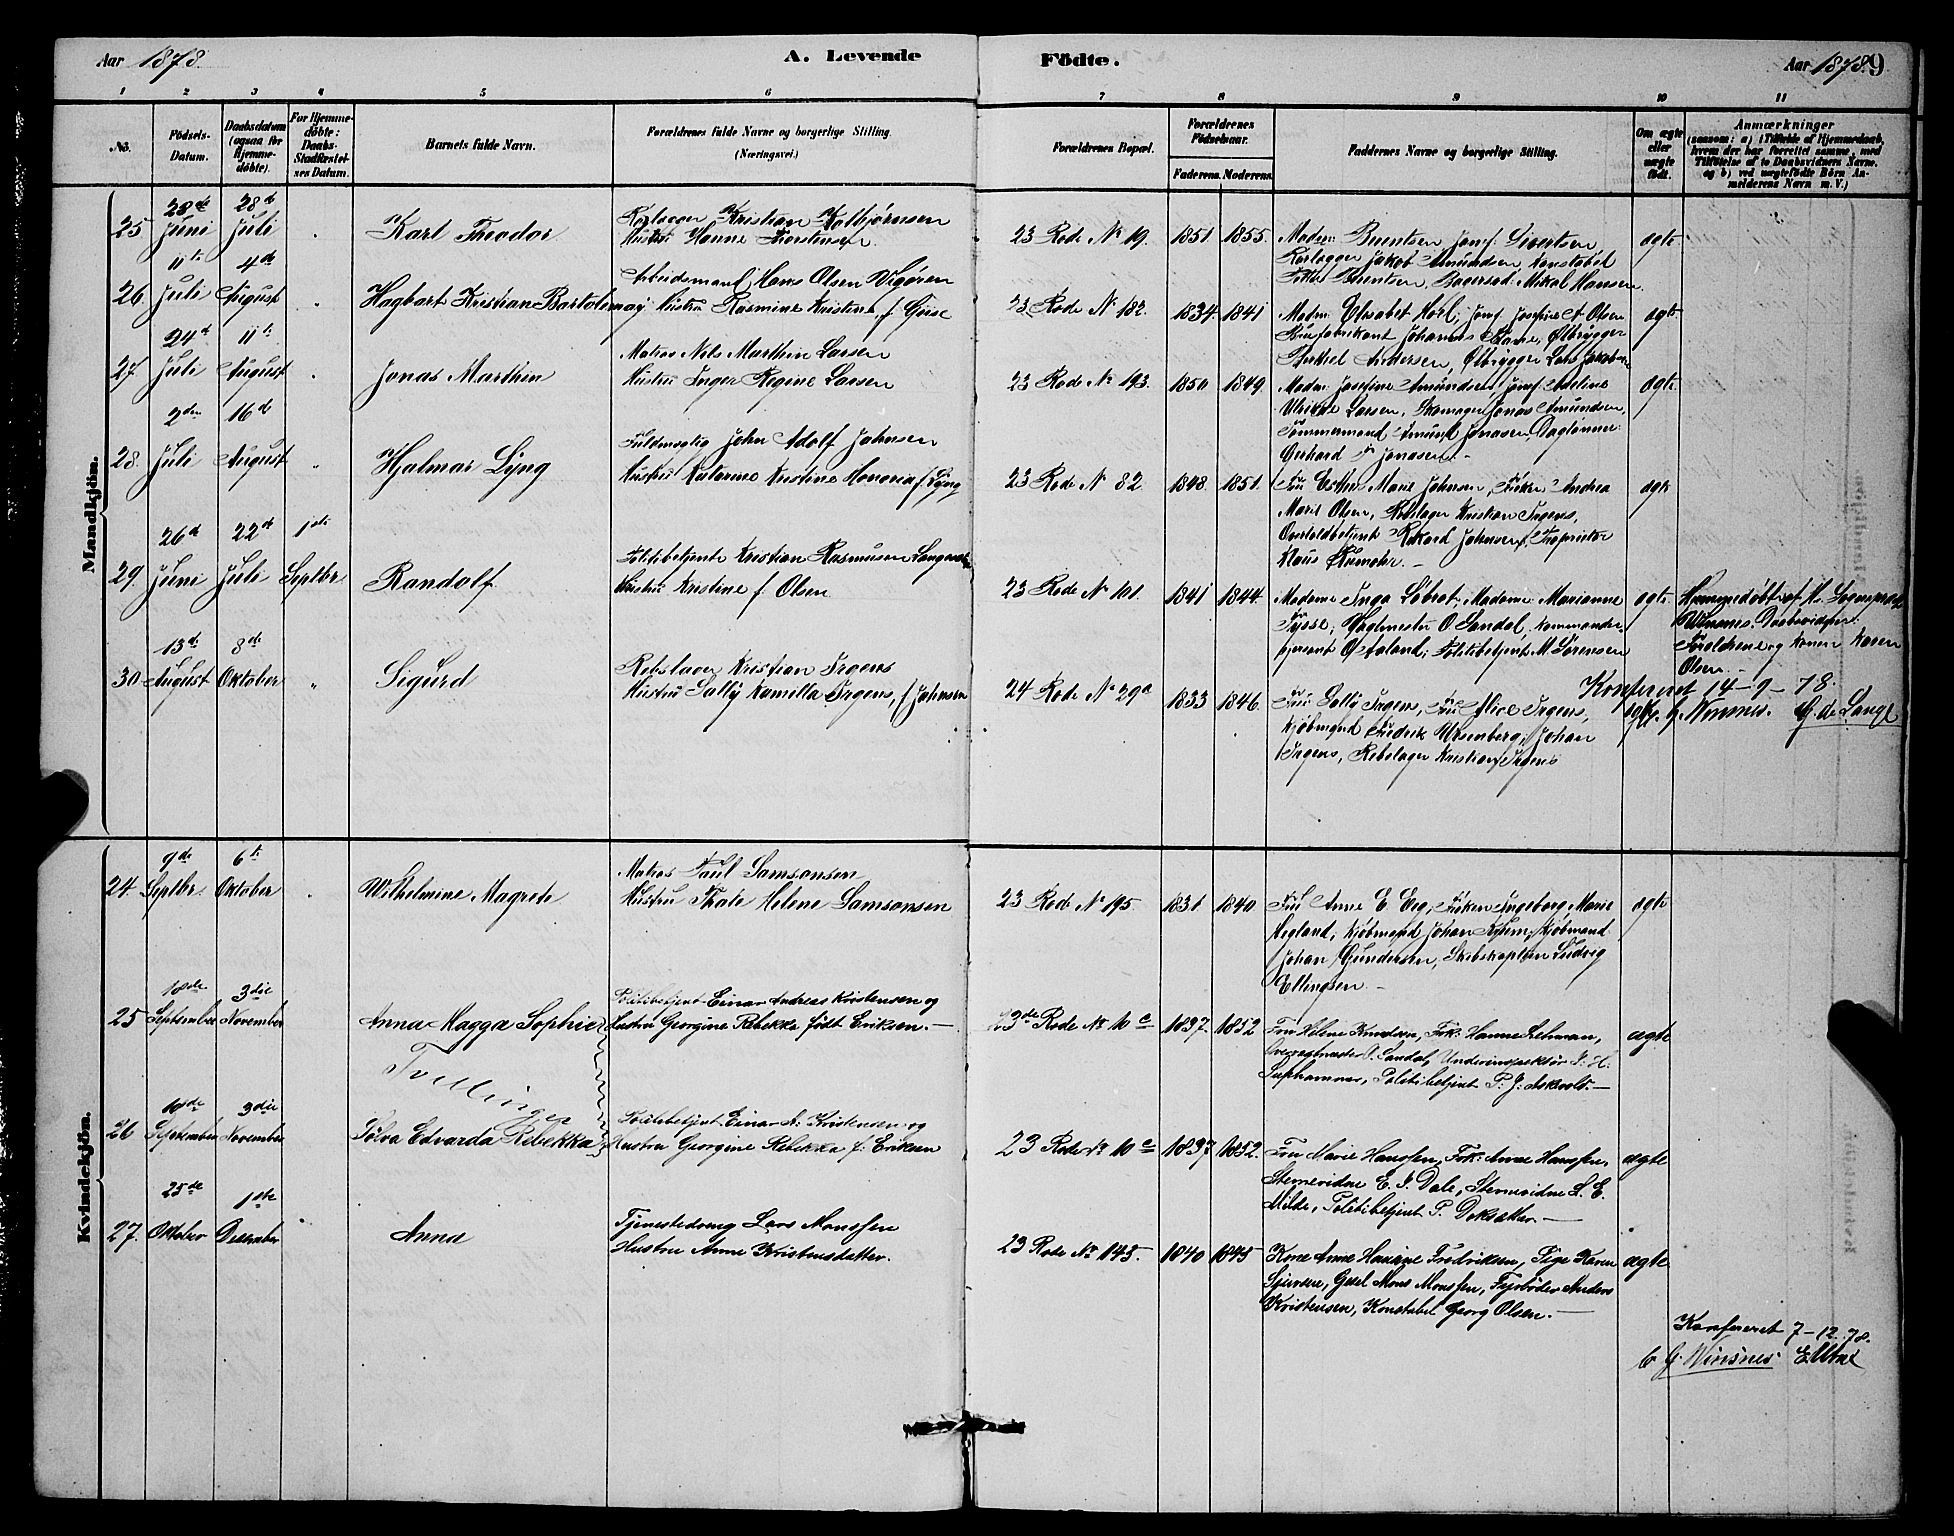 Aar 1878.
A. Levende
Födte.
Aar 1878. 9
1 2 3 4 5 6 7 8 9 10 11
No.
Födsels-Datum.
Daabsdatum (ogsaa for Hjemme-döbte).
For Hjemme-döbte: Daabs-Stadfæstel-ses Datum.
Barnets fulde Navn.
Forældrenes fulde Navne og borgerlige Stilling.
(Næringsvei.)
Forældrenes Bopæl.
Forældrenes Födselsaar.
Faderens. Moderens.
Faddernes Navne og borgerlige Stilling.
Om ægte eller uægte födt.
Anmærkninger
(saasom: a) i Tilfælde af Hjemmedaab,
hvem der har forrettet samme, med
Tilföielse af to Daabsvidners Navne.
og b) ved uægtefödte Börn An-
melderens Navn m. V.)
Mandkjön.
25 28de Juni 28de Juli
Karl Theodor
Kristian Kolbjørnsen
Hustru Hanne Thorstensen
23 Rode No 19. 1851 1855.
Madm: Berentsen, Jomf: Sivertsen
Jakob Amundsen, Konstabel
Berentsen, Mikal Hansen.
ægte
26 11te Juli 4de August
Hagbart Kristian Bartolomæy
Arbeidsmand Hans Olsen Vigören
Hustru Rasmine Kristine, f. Giise
23 Rode No 182. 1834. 1841
Madm: Elisabet Jomf: Josefine A Olsen
Johannes Ølbrygger
Andersen, Ølbrygger Lars Jakobsen
ægte
27 24de Juli 11te August
Jonas Marthin
Matros Nils Marthin Larsen
Hustru Inger Regine Larsen
23 Rode No 193. 1850 1849.
Madm: Josefine Amundsen, Jomf: Adeline
Ulrikke Larsen, Skomager Jonas Amundsen,
Tömmermand Amund Jonasen, Daglönner
Gerhard Jonasen.
ægte
28. 2den Juli 16de August
Hjalmar Lyng
Fuldmægtig John Adolf Johnsen
Hustru Katarine Kristine Honoria f. Lyng
23 Rode No 82 1848. 1851.
Fru Esther Marie Johnsen, Frøken Andrea
Marie Olsen, Rebslager Kristian Irgens,
Overtoldbetjent Rikard Johnsen, Proprietær
Klaus
ægte
29. 26de Juni 22de Juli 1ste Septbr
Randolf
Politibetjent Kristian Rasmusen
Hustru Kristine f. Olsen
23 Rode No 101. 1841 1844.
Madame Inga Madame Marianne
Vagtmester O Sandal, Kommander-
sjersant Politibetjent M. Sörensen
ægte. Hjemmedöbt af Hr
Winsnes. Daabsvidner:
Forældrene og Konen Karen
Olsen.
30. 13de August 8de Oktober
Sigurd
Rebslager Kristian Irgens
Hustru Sally Kamilla Irgens, f. Johnsen
24 Rode No 29a 1833 1846.
Fru Sally Irgens, Fru Alice Irgens,
Kjöbmand Fredrik Ursenberg, Johan
Irgens, Rebslager Kristian Irgens
ægte
Konfereret 14-9-78.
G. Winsnes. G. de Lange
Kvindekjön.
24. 9de Septbr. 6te Oktober
Wilhelmine Magrete
Matros Paul Samsonsen
Hustru Thale Helene Samsonsen
23 Rode No 195. 1831 1840
Fru Anne E Eeg, Frøken Ingeborg Marie
Aegland, Kjöbmand Johan Kjöbmand
Johan Gundersen, Skibskaptein Ludvig
Ellingsen.
ægte
25 10de September 3die November
Anna Magga Sophie
Politibetjent Einar Andreas Kristensen og
Hustru Georgine Rebekka født Eriksen.
23de Rode No 10c 1837. 1852
Fru Helene Knudsen, Frk: Hanne Lehman,
Overvagtmester O. Sandal, Underinspektör J. H.
Politibetjent P. J. Askvold.
ægte
Tvillinger
26 10de September 3die November
Sölva Edvarda Rebekka
Politibetjent Einar A. Kristensen og
Hustru Georgine Rebekka f. Eriksen
23 Rode No 10c 1837 1852.
Fru Marie Hanssen, Frk: Anne Hanssen,
Stevnevidne E. J. Dale, Stevnevidne L. E.
Milde, Politibetjent P.
ægte
27. 25de Oktober 1ste December
Anna
Tjenestedreng Lars Monssen
Hustru Anne Kristensdatter.
23 Rode No 143. 1840 1845
Kone Anne Fredriksen, Pige Karen
Gsel Mons Monssen, Fyrböder Anders
Kristensen, Konstabel Georg Olsen.
ægte
Konfereret 7-12.78.
C G. Winsnes.